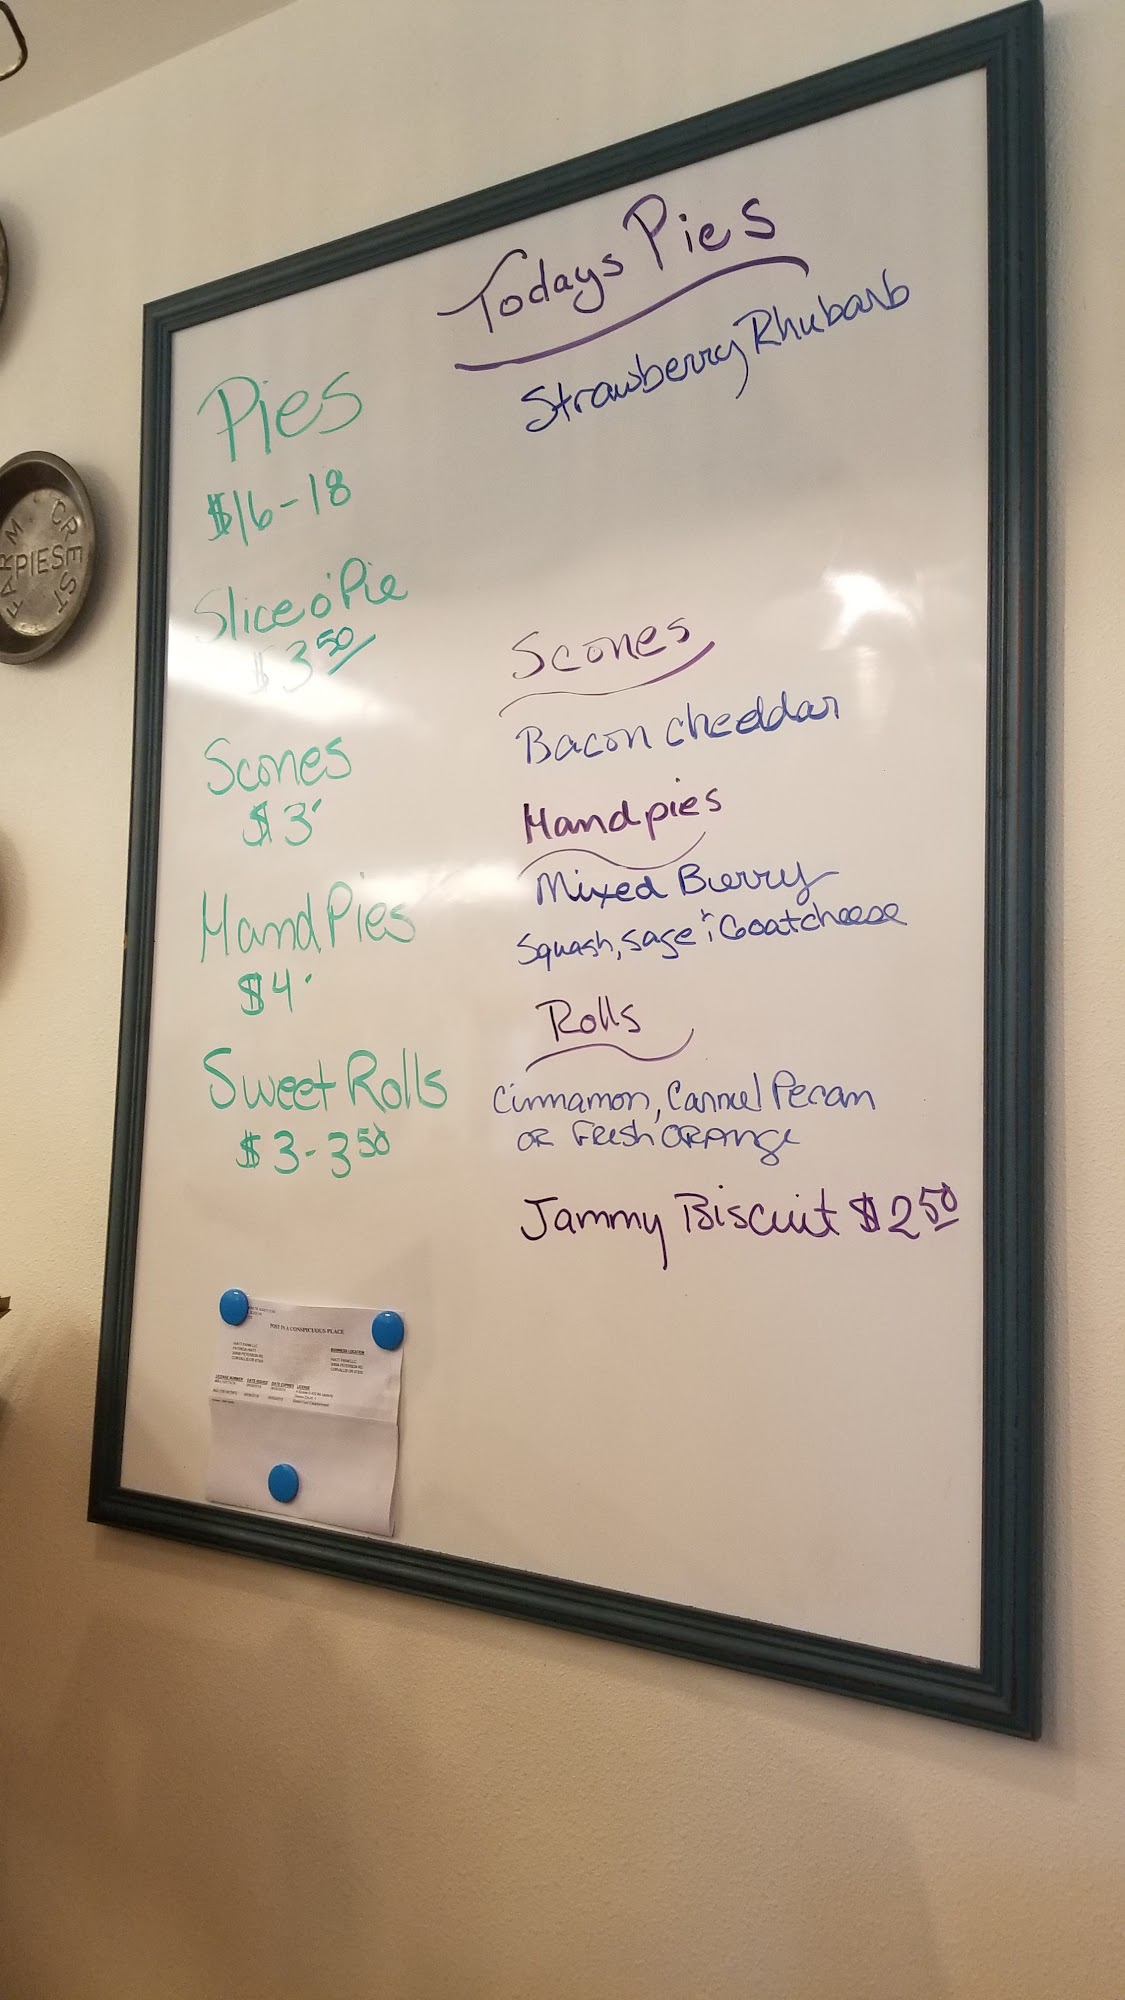 Todays Pies
Strawberry Rhubarb
Pies
$16-18
Slice o' Pie
$3 50
Scones
$3
Hand Pies
$4
Sweet Rolls
$3-3 50
Scones
Bacon cheddar
Handpies
Mixed Berry
Squash, Sage & Goatcheese
Rolls
Cinnamon, Carmel Pecan
OR FRESH ORANGE
Jammy Biscuit $2 50
FARM CREST
PIES
POST IN A CONSPICUOUS PLACE
BUSINESS LOCATION
LICENSE NUMBER DATE ISSUED DATE EXPIRES LICENSE